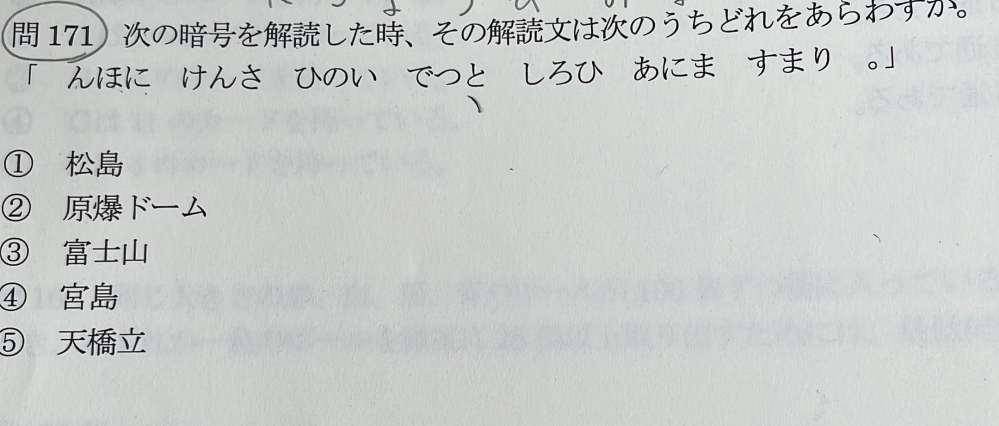 問171 次の暗号を解読した時、その解読文は次のうちどれをあらわすか。
「 んほに けんさ ひのい でつと しろひ あにま すまり 。」
① 松島
② 原爆ドーム
③ 富士山
④ 宮島
⑤ 天橋立